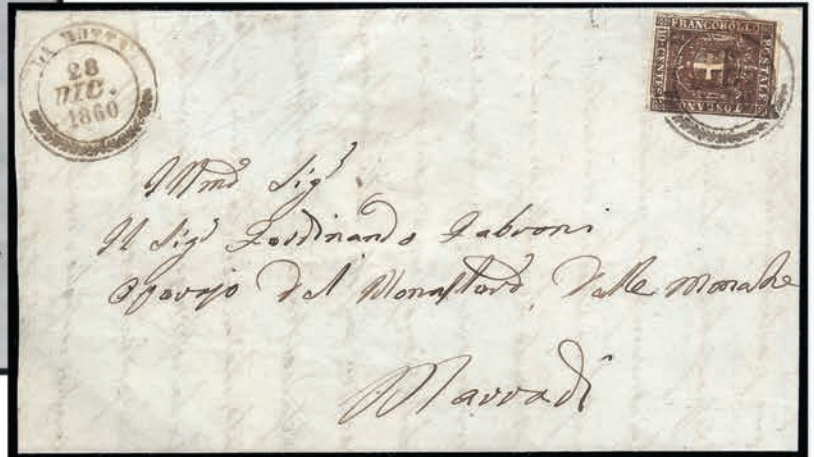 28
DIC.
1860
FRANCOBOLLO
POSTALE
TOSCANO
10 CENT
Illmo Sigr
Il Sigr Ferdinando Fabroni
del Monastero Delle Monache
Marradi